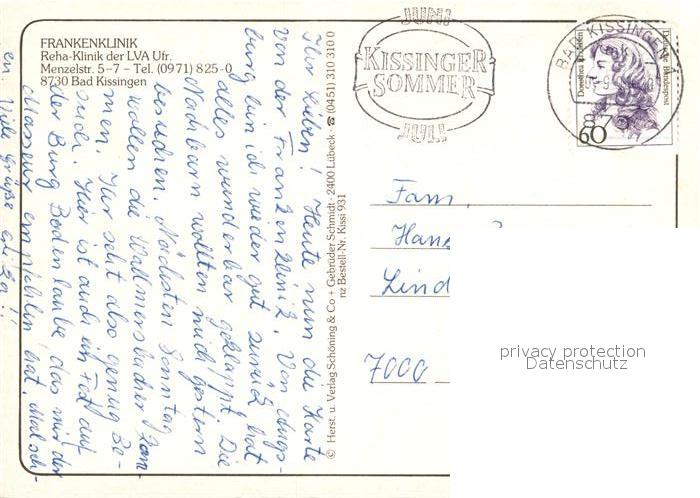 FRANKENKLINIK
Reha-Klinik der LVA Ufr.
Menzelstr. 5-7 – Tel. (09 71) 825-0
8730 Bad Kissingen
Ihr Lieben! Heute nun die Karte
von der Frankenklinik. Von
burg bin ich wieder gut zurück hat
alles wunderbar geklappt. Die
Nachbarn wollten mich gestern
besuchen. Nächsten Sonntag
wollen die
men. Ihr seht also genug Be-
such. Hier ist auch ein Fest auf
der Burg Bodenlaube, das mir der
Masseur empfohlen hat.
en Viele Grüße
© Herst. u. Verlag Schöning & Co + Gebrüder Schmidt · 2400 Lübeck · ☎ (0451) 310 310 0
nz Bestell-Nr. Kissi 931
JUNI
KISSINGER
SOMMER
JULI
BAD KISSINGEN
Deutsche Bundespost
60
Fam.
Hans
Lind
7000
privacy protection
Datenschutz